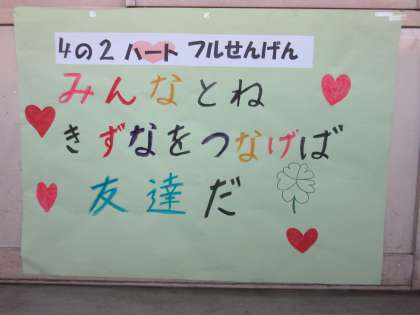 4の2 ハート フルせんげん
みんなとね
きずなをつなげば
友達だ